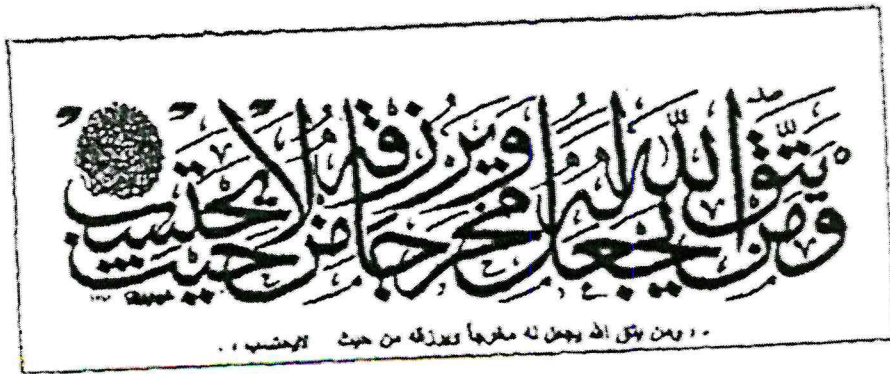 ومن يتق الله يجعل له مخرجا ويرزقه من حيث لا يحتسب
، ومن يتق الله يجعل له مخرجاً ويرزقه من حيث لايحتسب ،